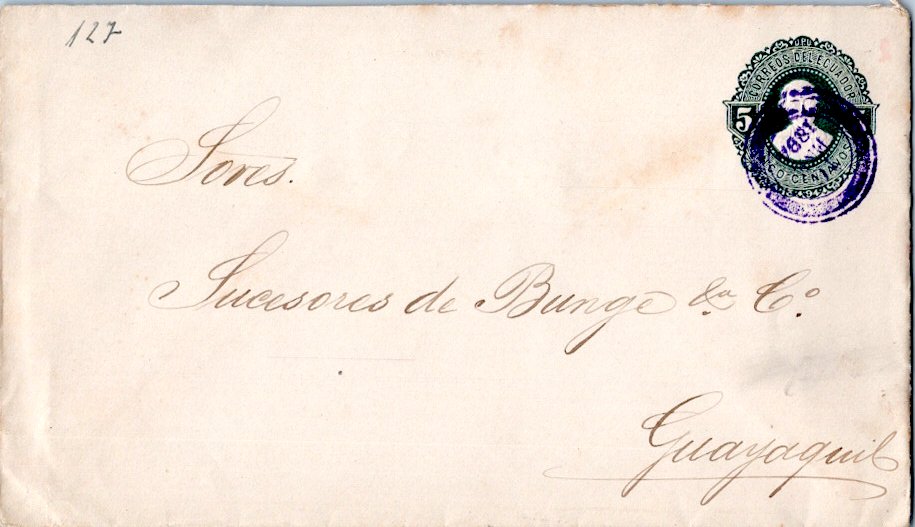 127
U.P.U
CORREOS DEL ECUADOR
5
CENTAVOS
1881
Sores.
Sucesores de Bunge &a Co.
Guayaquil